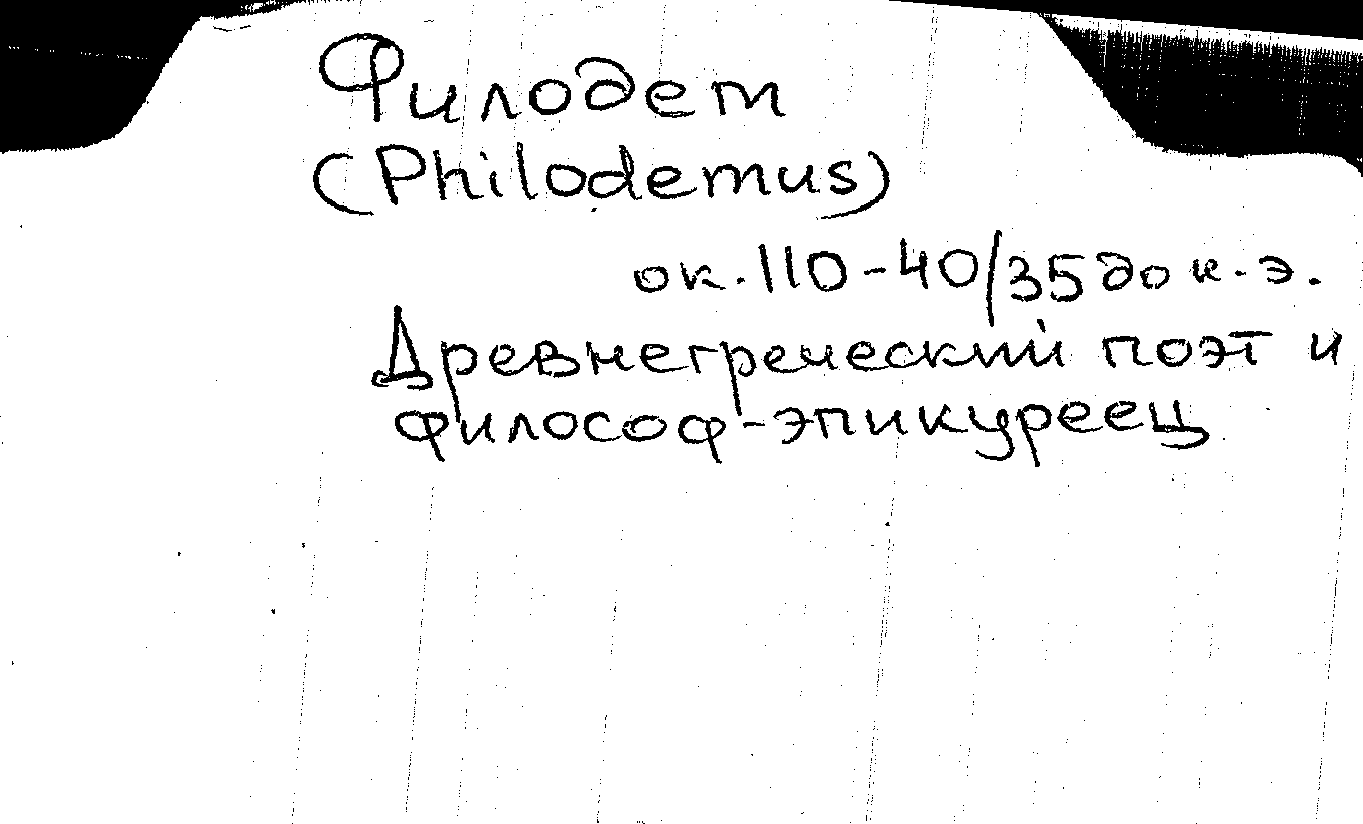 Филодет
(Philodemus)
ок. 110-40/35 до н.э.
Древнегреческий поэт и
философ-эпикуреец